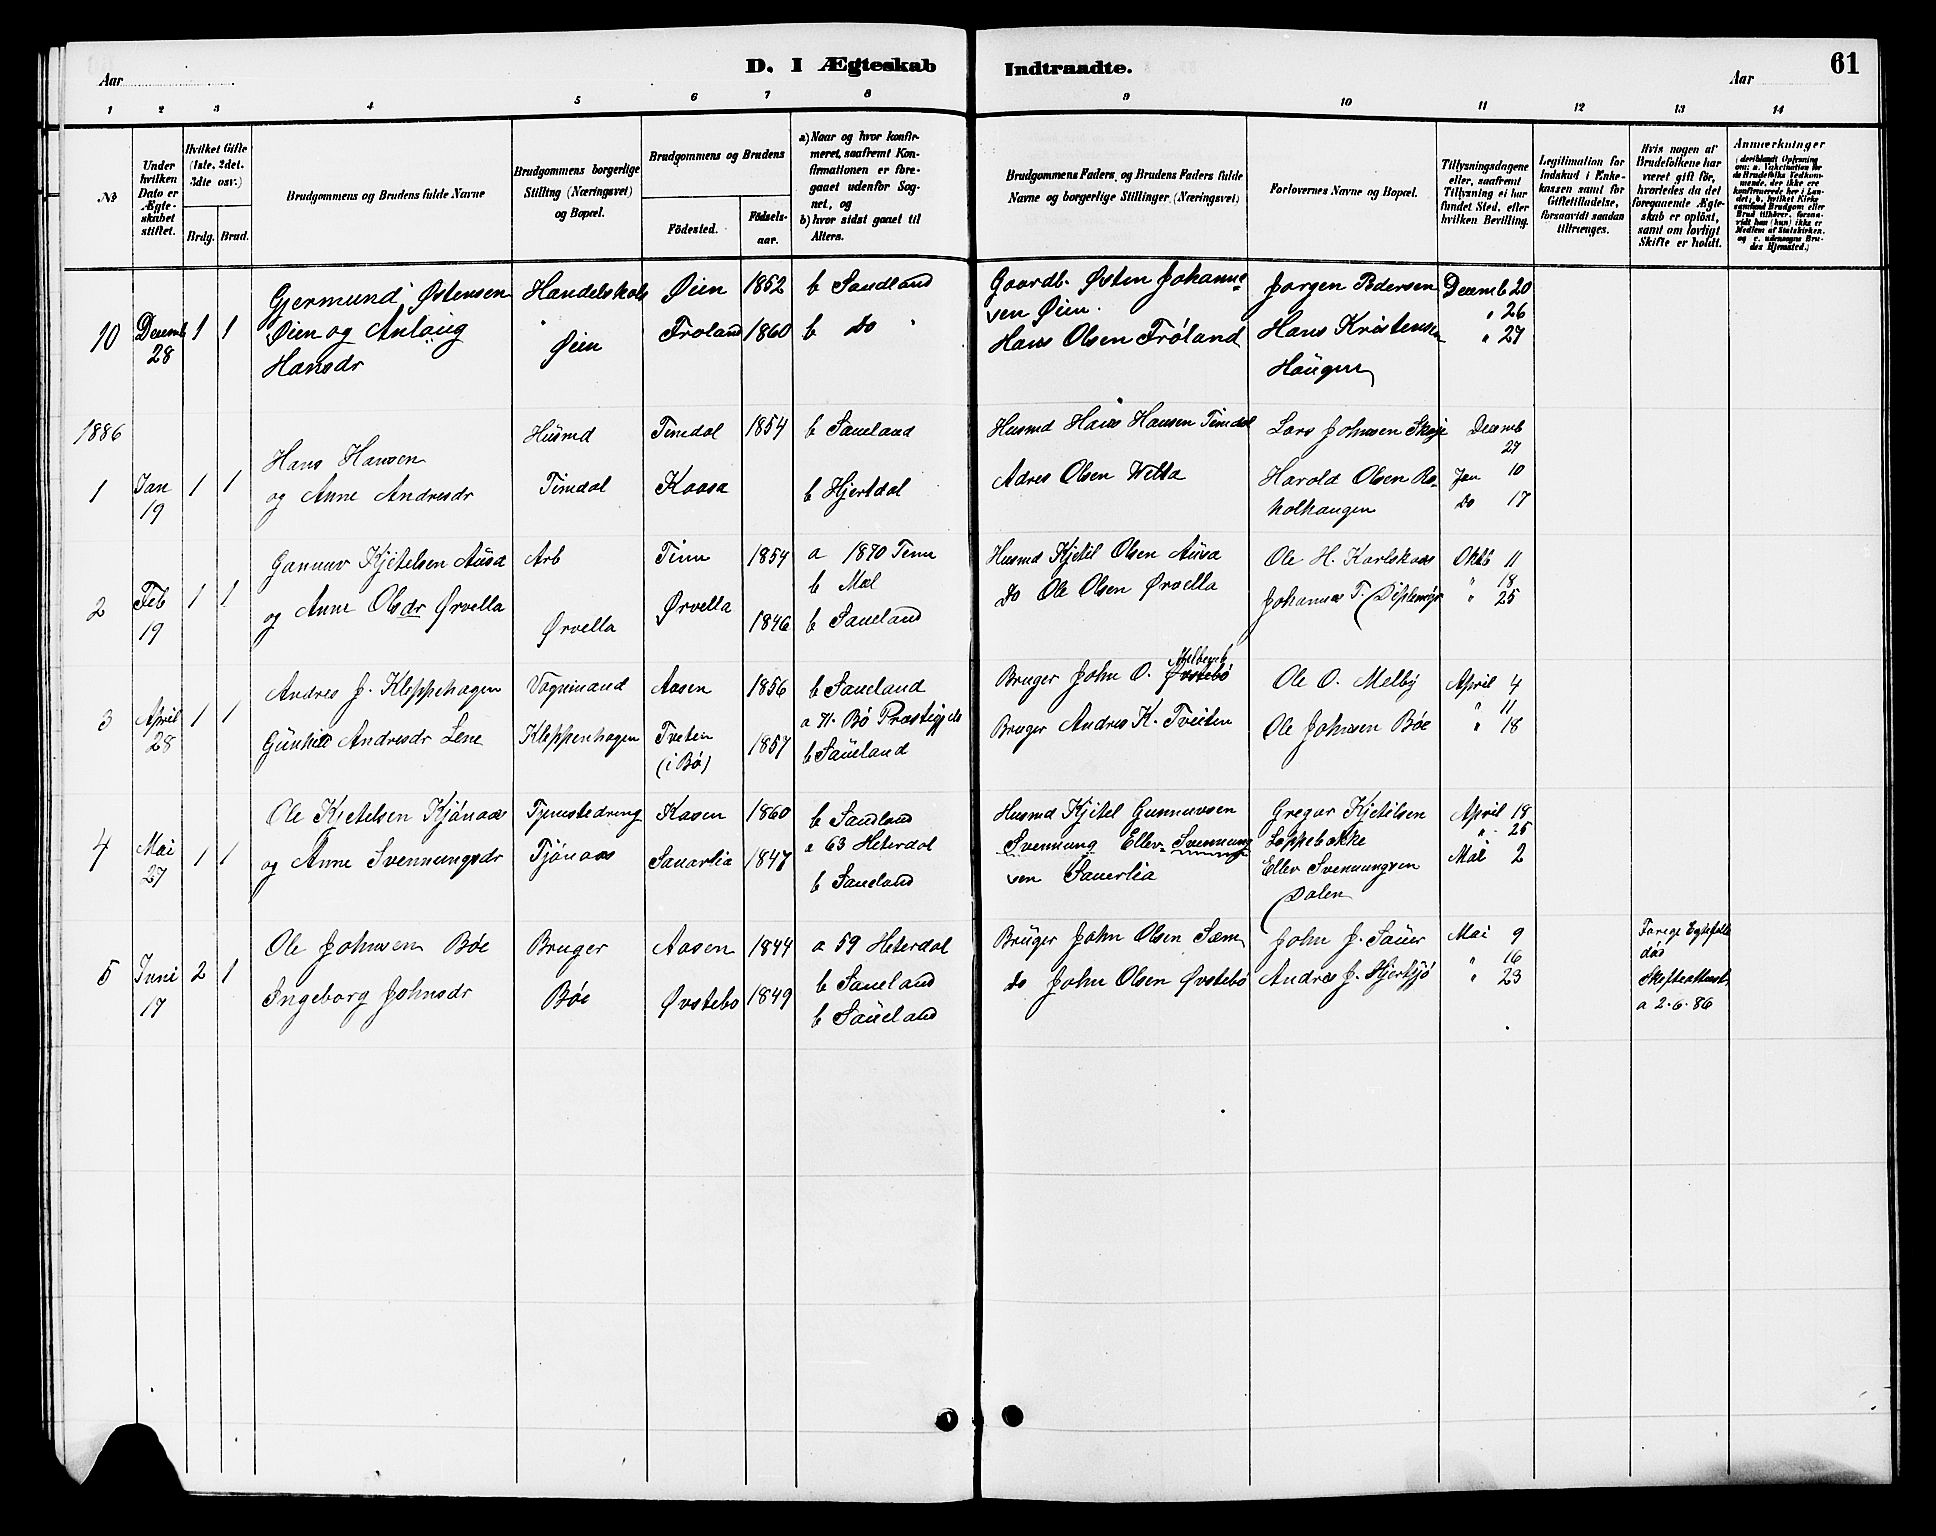 61
D. I Ægteskab Indtraadte.
Aar
Aar
1 2 3 4 5 6 7 8 9 10 11 12 13 14
№
Under hvilken Dato er Ægteskabet stiftet.
Hvilket Gifte (1ste, 2det, 3die osv.)
Brdg. Brud.
Brudgommens og Brudens fulde Navne
Brudgommens borgerlige Stilling (Næringsvei) og Bopæl.
Brudgommens og Brudens
Födested.
Födsels-aar.
a) Naar og hvor konfirmeret, saafremt Konfirmationen er foregaaet udenfor Sognet, og
b) hvor sidst gaaet til Alters.
Brudgommens Faders, og Brudens Faders fulde Navne og borgerlige Stillinger (Næringsvei)
Forlovernes Navne og Bopæl.
Tillysningsdagene eller, saafremt Tillysning ei har fundet Sted, efter hvilken Bevilling.
Legitimation for Indskud i Enkekassen samt for Giftetilladelse, forsaavidt saadan tiltrænges.
Hvis nogen af Brudefolkene har været gift før, hvorledes da det foregaaende Ægteskab er oplöst, samt om lovligt Skifte er holdt.
Anmærkninger
Gjermund Østensen Handelskols Øien 1852 b Sandland Gaardb. Østen Johanne= Jorgen Pedersen Decemb 20
10 Decemb 28 1 1 Øien og Anlaug Hansdr Øien Froland 1860 b Do sen Øien. " 26
Hans Olsen Fröland Hans Kristensen Haugen " 27
1886
Husmd Tindal 1854 b Saueland Husmd Hans Hansen Tindal Lars Johnsen Decemb 27
1 Jan 19 1 1 Hans Hansen og Anne Andresdr Tindal Kaasa b Hjertdal Adres Olsen Harald Olsen Ro- Jan 10
holhaugen Do 17
Gunnuv Kjetelsen Aasa Arb Tinn 1854 a 1870 Tinn Husmd Kjetil Olsen Aasa Ole H. Karlskaas Oktb 11
b Mæl " 18
2 Feb 19 1 1 og Anne Olsdr Ørvella Ørvella Ørvella 1846 b Saueland Do Ole Olsen Ørvella Johannes T. " 25
Andres J. Kleppehagen Vognmand Aasen 1856 b Saueland Bruger John O. Øvstebö Ole O. Melby April 4
3 April 28 1 1 Gunhild Andresdr Lene Kleppenhagen Tveten (i Bö) 1857 a 71. Bö Præstegjeld b Saueland Bruger Andres K. Tveiten Ole Johnsen Böe " 11
" 18
Ole Kjetelsen Kjönaas Tjenstedreng Kasen 1860 b Sandland Husmd Kjetel Gunnuvsen Gregar Kjetilsen April 18
a 63 Heterdal Svennung Ellev Svennung Loppebakke " 25
4 Mai 27 1 1 og Anne Svennungsdr Tjönaas Sauarlia 1847 b Saueland sen Sauerlia Ellev Svennungsen Dalen Mai 2
Ole Johnsen Böe Bruger Aasen 1844 a 59 Heterdal Bruger John Olsen Sem John J. Sauer Mai 9 Forige Egtefelle död
b Saueland " 16
5 Juni 17 2 1 Ingeborg Johnsdr Böe Øvstebo 1849 b Saueland Do John Olsen Øvstebö Andres J. Hjertsjö " 23 Skifteattest
a 2-6-86